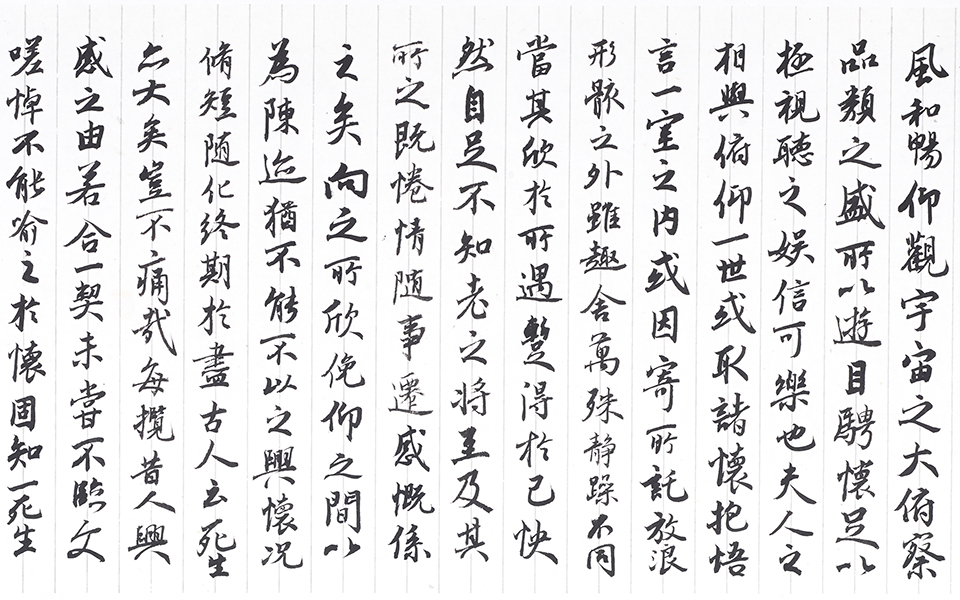 風和暢仰觀宇宙之大俯察
品類之盛所以遊目騁懷足以
極視聽之娱信可樂也夫人之
相與俯仰一世或取諸懷抱悟
言一室之内或因寄所託放浪
形骸之外雖趣舍萬殊静躁不同
當其欣於所遇蹔得於己怏
然自足不知老之将至及其
所之既惓情随事遷感慨係
之矣向之所欣俛仰之間以
為陳迹猶不能不以之興懷况
脩短随化終期於盡古人云死生
亦大矣豈不痛哉每攬昔人興
感之由若合一契未嘗不臨文
嗟悼不能喻之於懷固知一死生